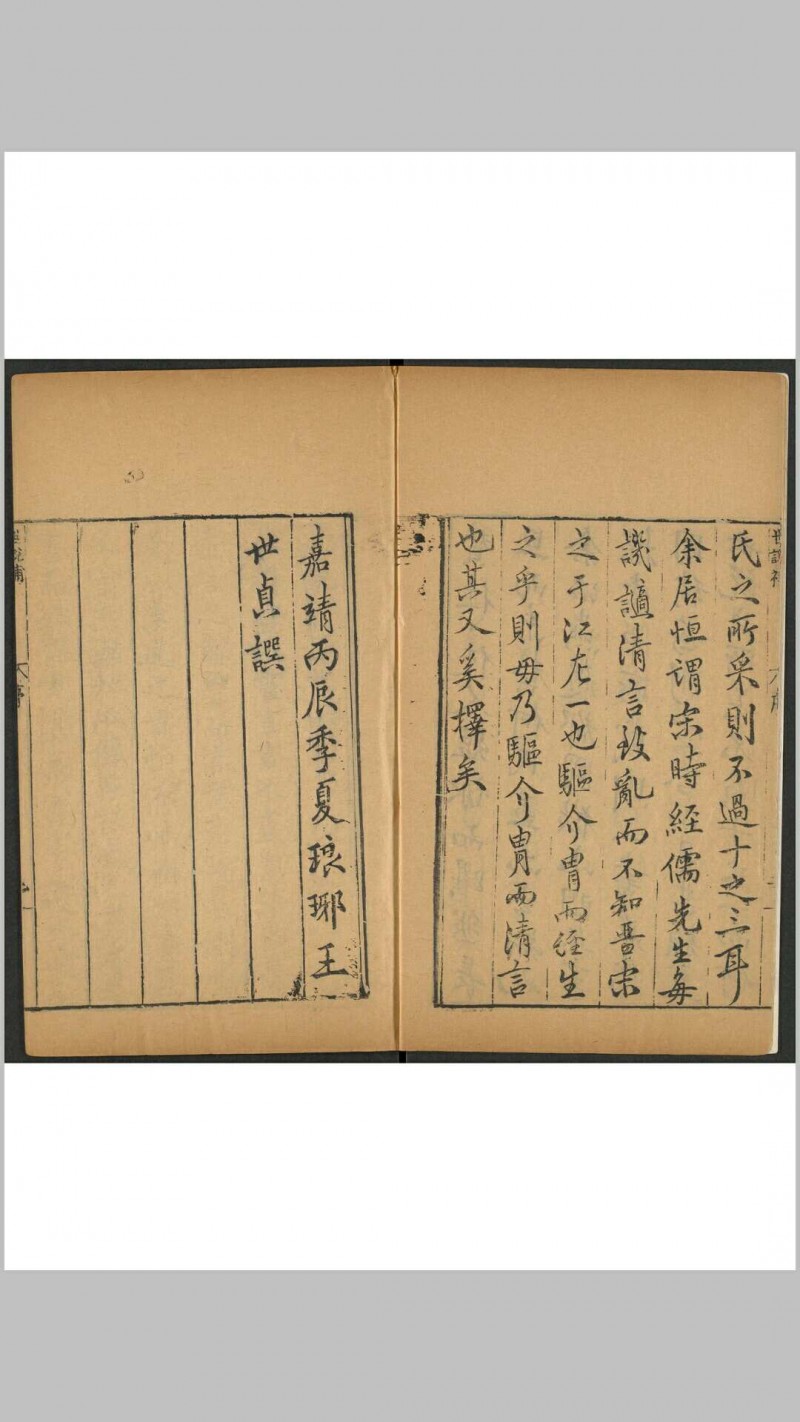 氏之所采則不過十之三耳
余居恒謂宋時經儒先生每
譏謫清言致亂而不知晋宋
之于江左一也驅介胄而經生
之乎則毋乃驅介胄而清言
也其又奚擇矣
嘉靖丙辰季夏琅琊王
世貞譔